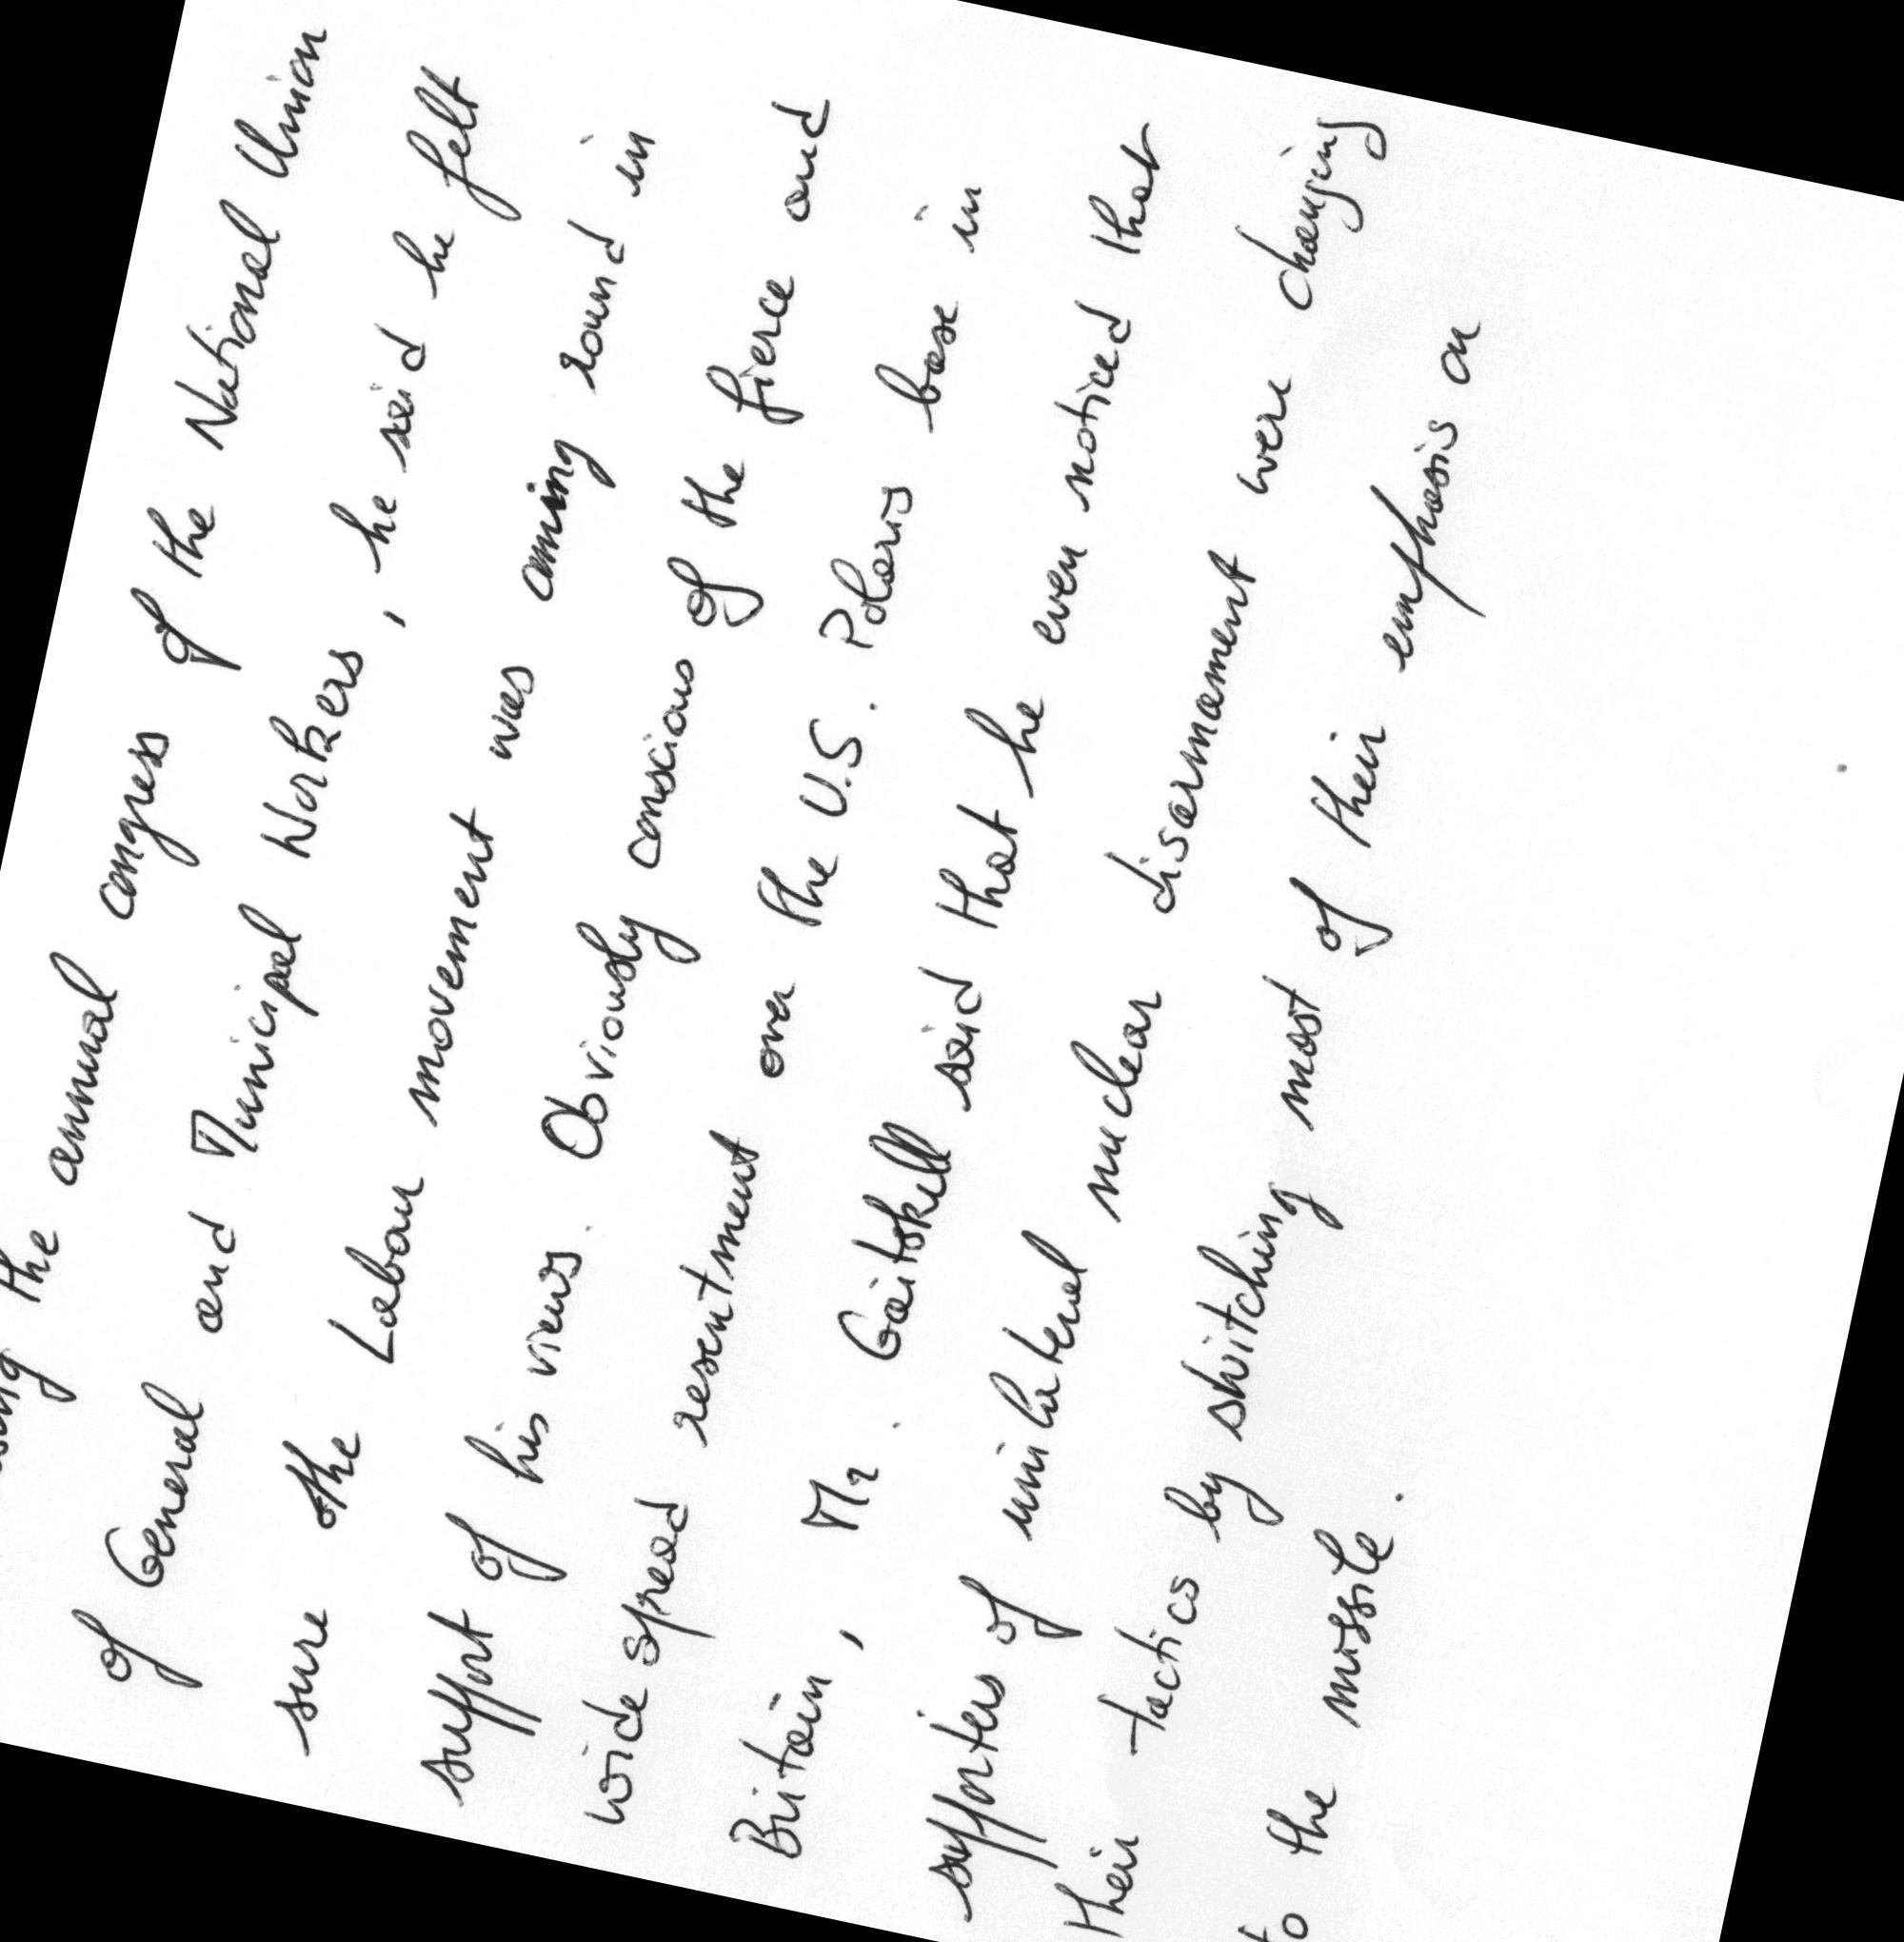 the annual congress of the National Union
of General and Municipal Workers, he said he felt
sure the Labour movement was coming round in
support of his views. Obviously conscious of the fierce and
widespread resentment over the U.S. Polaris base in
Britain, Mr. Gaitskell said that he even noticed that
supporters of unilateral nuclear disarmament were changing
their tactics by switching most of their emphasis on
to the missile.